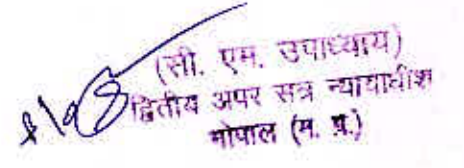 (सी. एम. उपाध्याय)
द्वितीय अपर सत्र न्यायाधीश
भोपाल (म. प्र.)